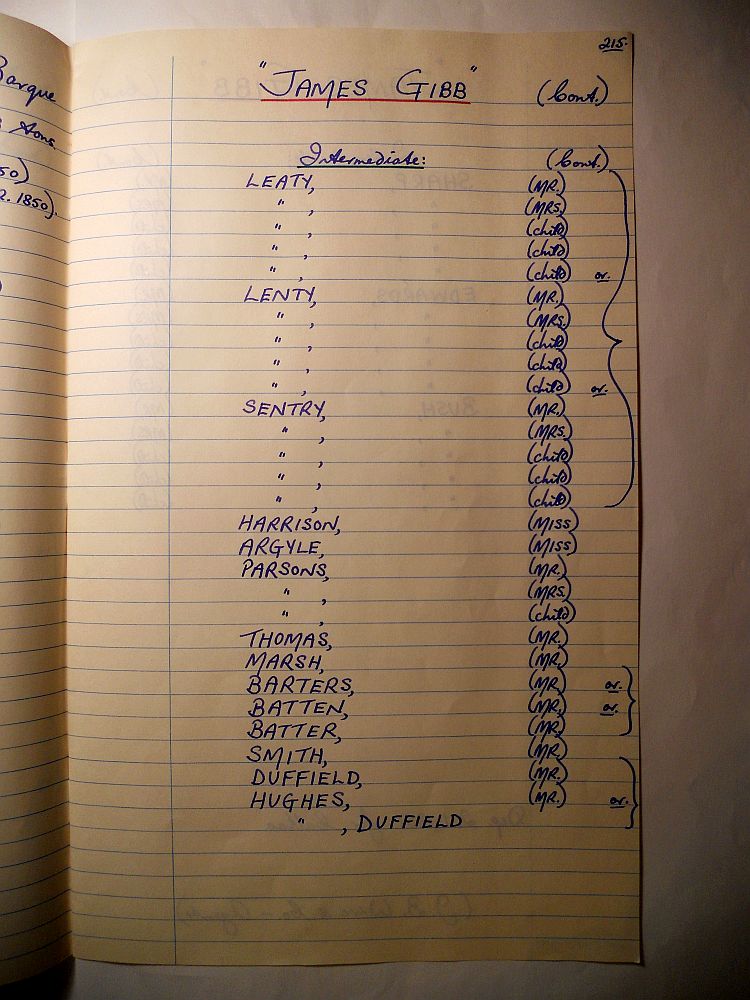 Barque
Tons.
50)
R. 1850).
215.
"JAMES GIBB" (Cont.)
Intermediate: (Cont.)
LEATY, (MR.)
" , (MRS.)
" , (child)
" , (child)
" , (child) or.
LENTY, (MR.)
" , (MRS.)
" , (child)
" , (child)
" , (child) or.
SENTRY, (MR.)
" , (MRS.)
" , (child)
" , (child)
" , (child)
HARRISON, (MISS)
ARGYLE, (MISS)
PARSONS, (MR.)
" , (MRS.)
" , (child)
THOMAS, (MR.)
MARSH, (MR.)
BARTERS, (MR.) or.
BATTEN, (MR.) or.
BATTER, (MR.)
SMITH, (MR.)
DUFFIELD, (MR.)
HUGHES, (MR.) or.
" , DUFFIELD